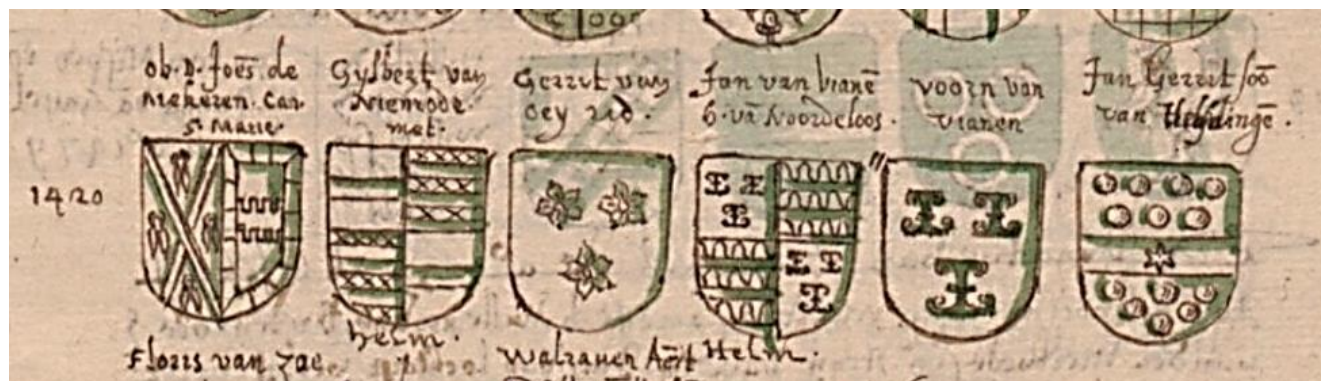 ob. D. Joēs de
Mekeren. Can.
S. Marie
Gÿsbert van
Nienrode.
met.
Gerrit van
oey rid.
Jan van vianē
b. vā Noordeloos.
voorn van
vianen
Jan Gerrit soō
van Heÿdingē.
1420
helm.
Helm.
Floris van zae
Walraven Aert